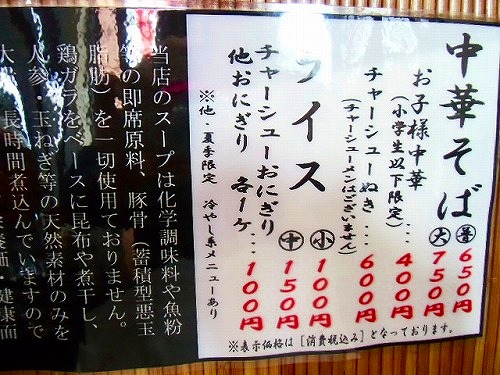 中華そば ㊢普 650円
大 750円
お子様中華
(小学生以下限定)… 400円
チャーシューぬき… 600円
(チャーシューメンはございません)
ライス 小 100円
中 150円
チャーシューおにぎり
他おにぎり 各1ケ… 100円
※他、夏季限定 冷やし系メニューあり
※表示価格は[消費税込み]となっております。
当店のスープは化学調味料や魚粉
等の即席原料、豚骨(蓄積型悪玉
脂肪)を一切使用しておりません。
鶏ガラをベースに昆布や煮干し、
人参・玉ねぎ等の天然素材のみを
大 長時間煮込んでいますので
健康面